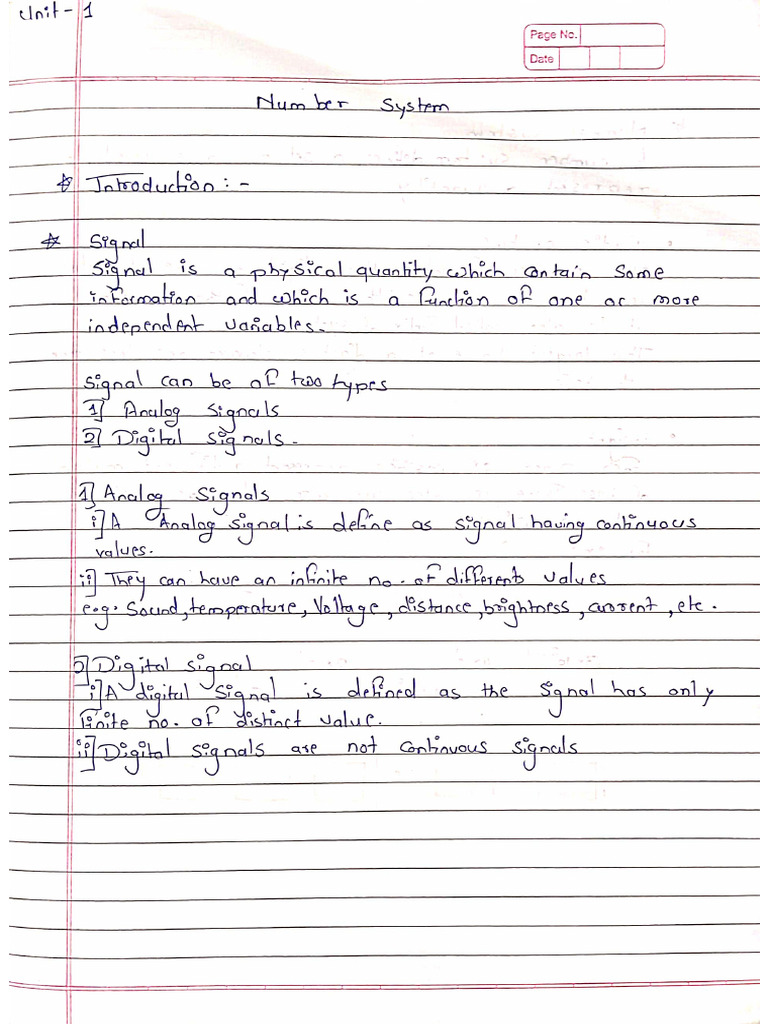 Unit - 1
Page No.
Date
Number System
☆ Introduction : -
☆ Signal
Signal is a physical quantity which contain some
information and which is a function of one or more
independent variables.
Signal can be of two types
1] Analog signals
2] Digital signals.
1] Analog signals
i] A Analog signal is define as signal having continuous
values.
ii] They can have an infinite no. of differents values
e.g. Sound, temperature, Voltage, distance, brightness, current, etc.
2] Digital signal
i] A digital signal is defined as the signal has only
finite no. of distinct value.
ii] Digital signals are not continuous signals